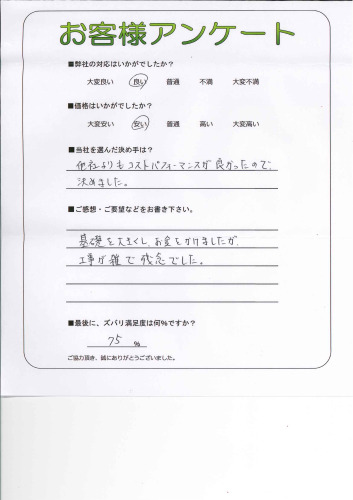 お客様アンケート
■弊社の対応はいかがでしたか？
大変良い 良い 普通 不満 大変不満
■価格はいかがでしたか？
大変安い 安い 普通 高い 大変高い
■当社を選んだ決め手は？
他社よりもコストパフォーマンスが良かったので、
決めました。
■ご感想・ご要望などをお書き下さい。
基礎を大きくし、お金をかけましたが、
工事が雑で残念でした。
■最後に、ズバリ満足度は何％ですか？
75 ％
ご協力頂き、誠にありがとうございました。